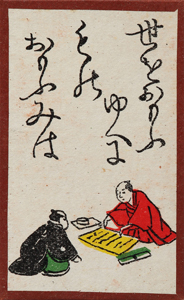 世をおもふ
ゆへに
もの
おもふみは